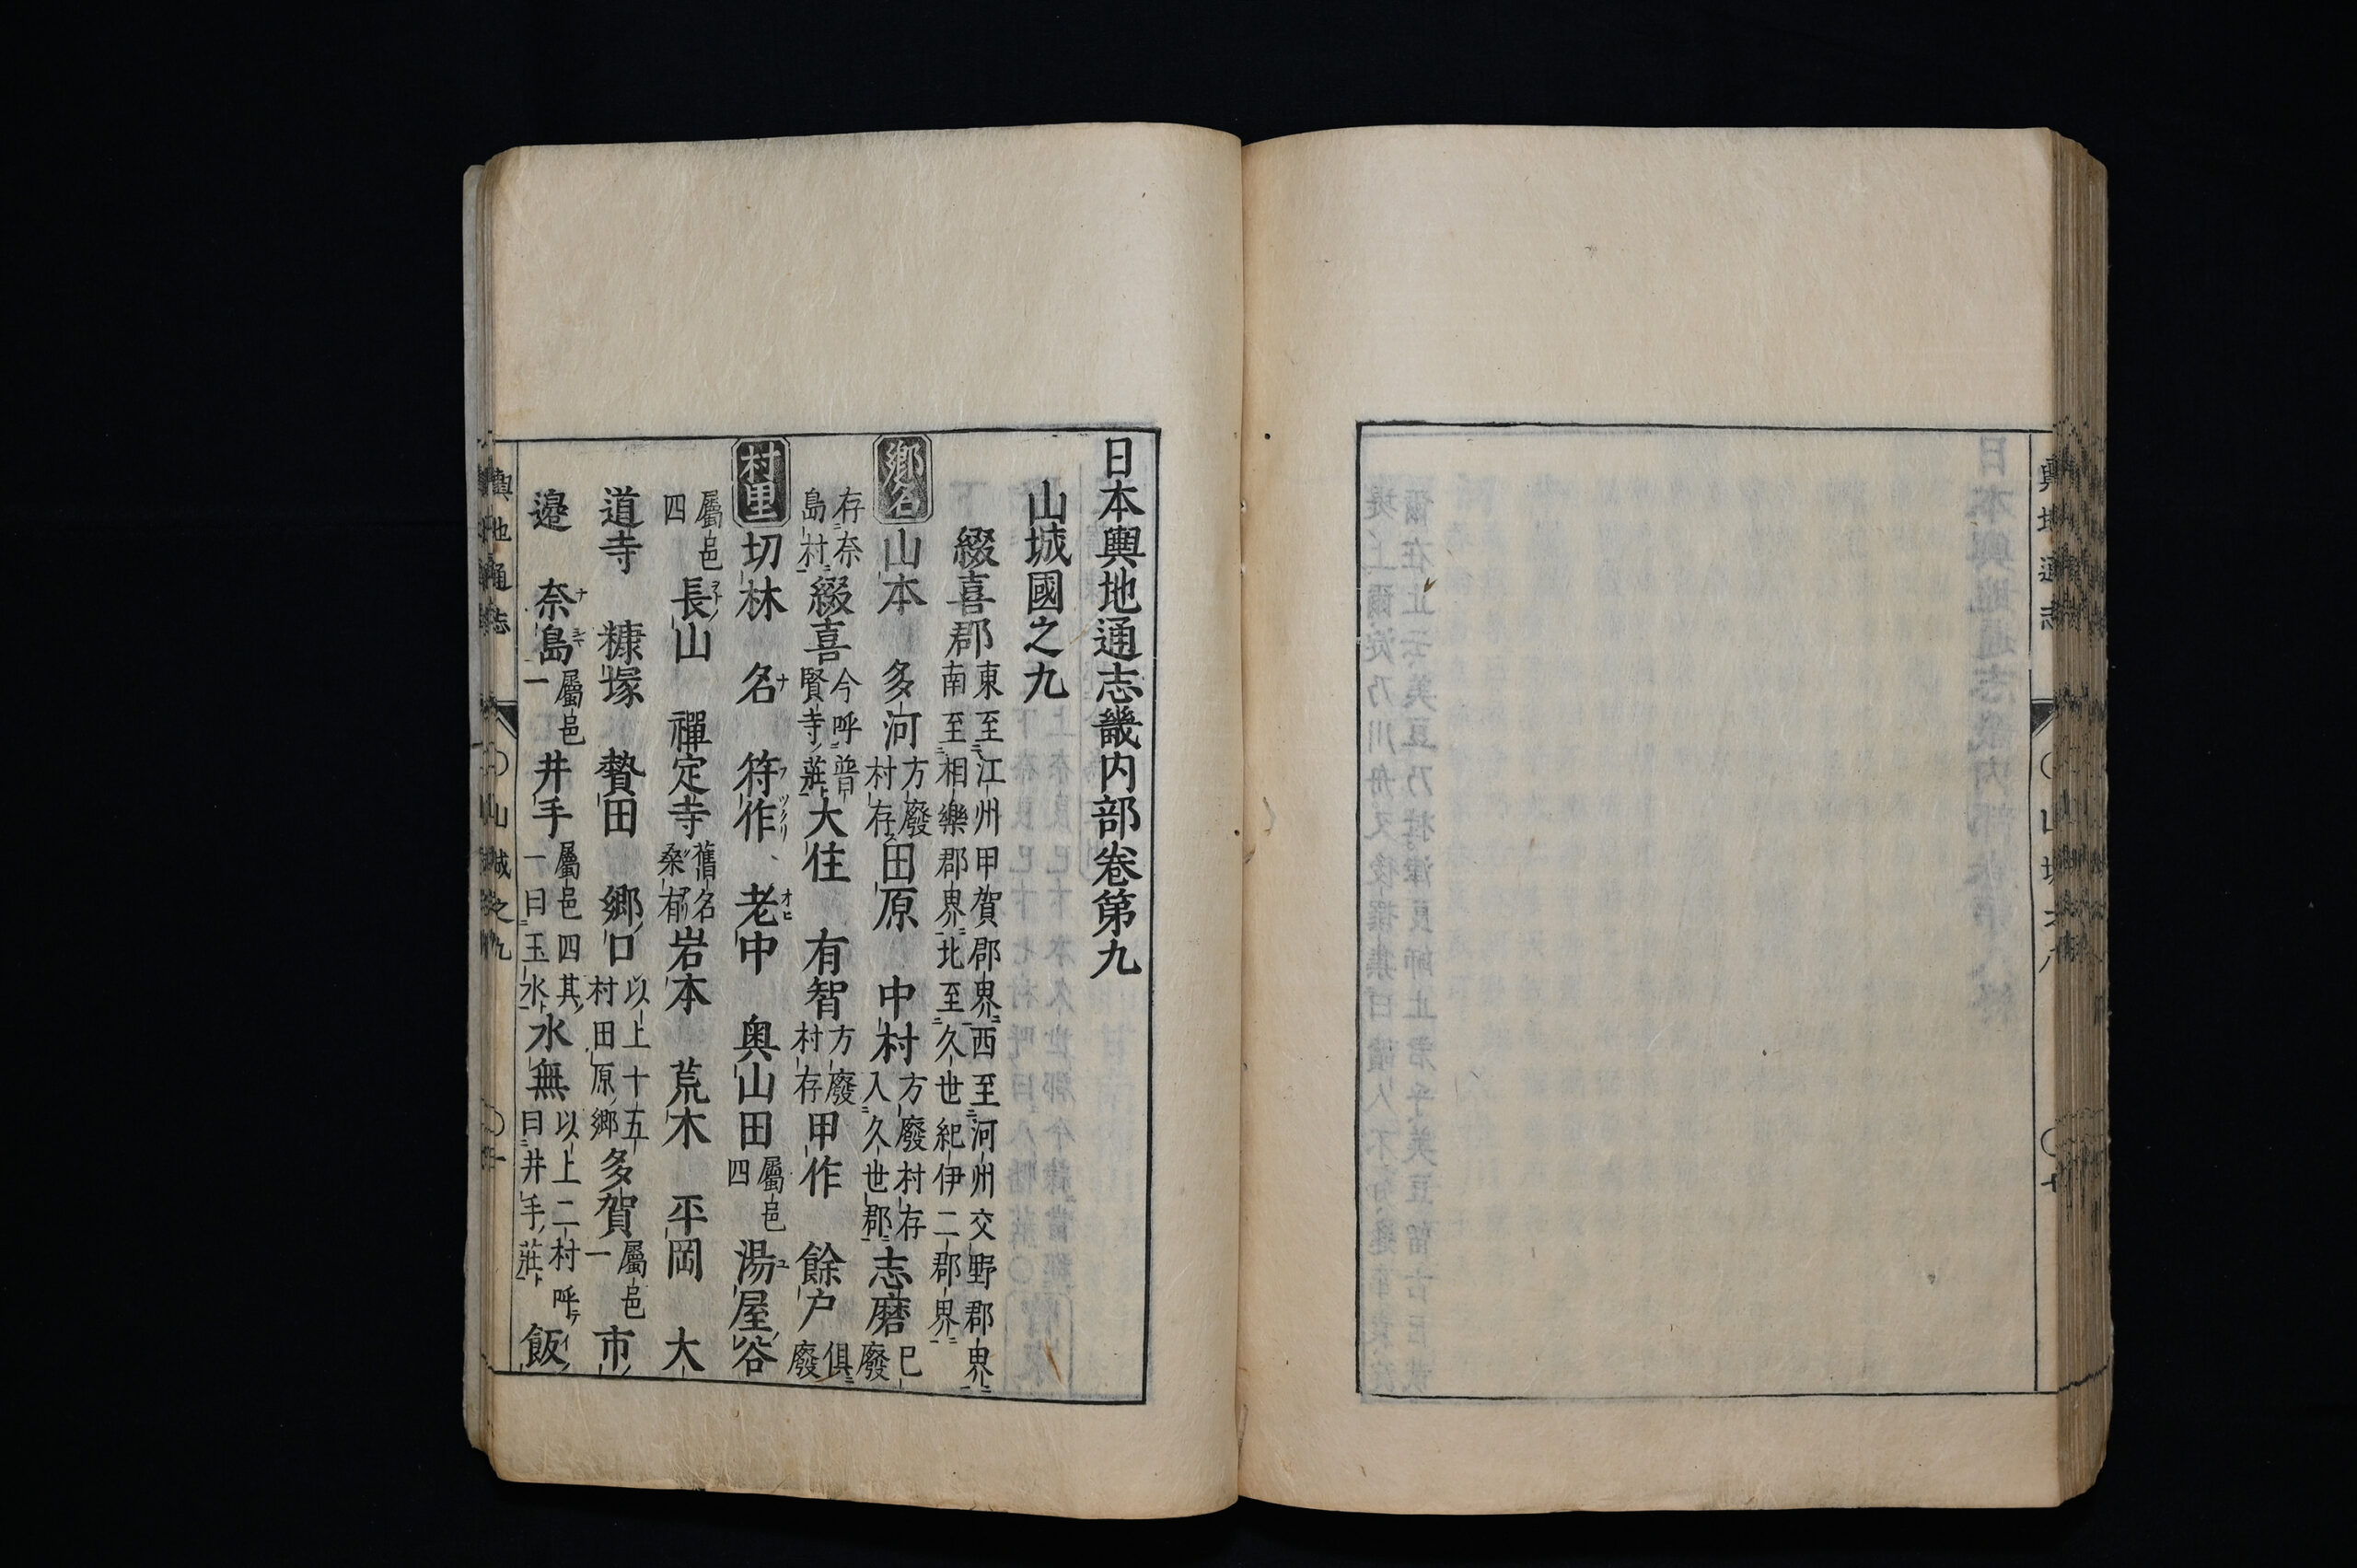 日本輿地通志畿内部卷第九
山城國之九
綴喜郡 東至江州甲賀郡界西至河州交野郡界
南至相樂郡界北至久世紀伊二郡界
鄉名 山本 多河 方廢村存 田原 中村 方廢村存入久世郡 志磨 已廢
存奈島村 綴喜 今呼普賢寺莊 大住 有智 方廢村存 甲作 餘户 俱廢
村里 切林 名 符作 老中 奥山田 屬邑四 湯屋谷
屬邑四 長山 禪定寺 舊名桑在 岩本 荒木 平岡 大
道寺 糠塚 贄田 鄉口 以上十五村田原鄉 多賀 屬邑一 市
邉 奈島 屬邑一 井手 屬邑四其一曰玉水 水無 以上二村呼曰井手莊 飯
輿地通志 〇山城之九 〇一